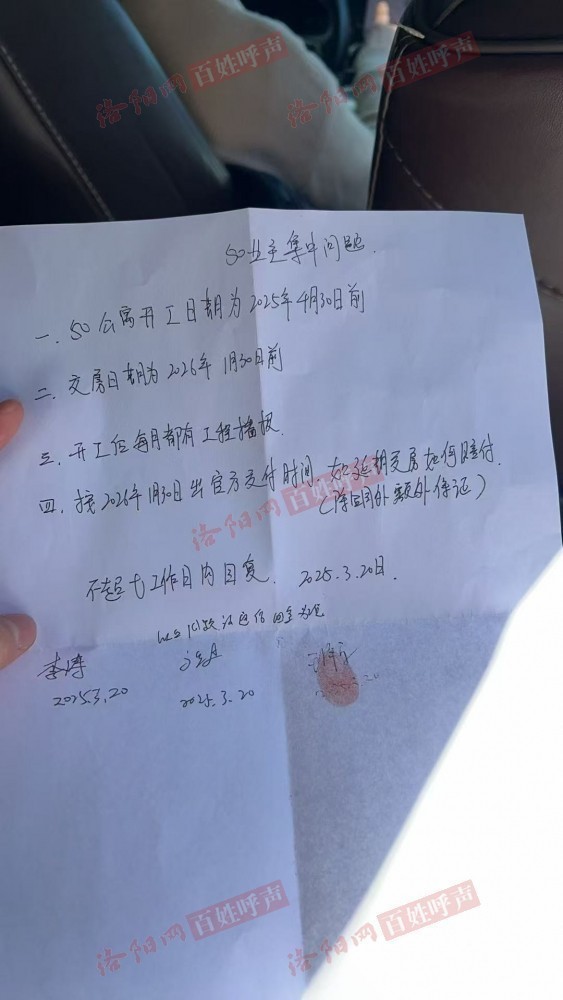 洛阳网百姓呼声
洛阳网百姓呼声
50业主集中问题.
一. 50公寓开工日期为2025年4月30日前
二. 交房日期为2026年1月30日前
三. 开工后每月都有工程播报.
四. 按2026年1月30日出官方交付时间. 如延期交房如何赔付.
(除合同外额外保证)
洛阳网百姓呼声
不超七工作日内回复. 2025.3.20日.
李涛
2025.3.20
2025.3.20
洛阳网百姓呼声
洛阳网百姓呼声